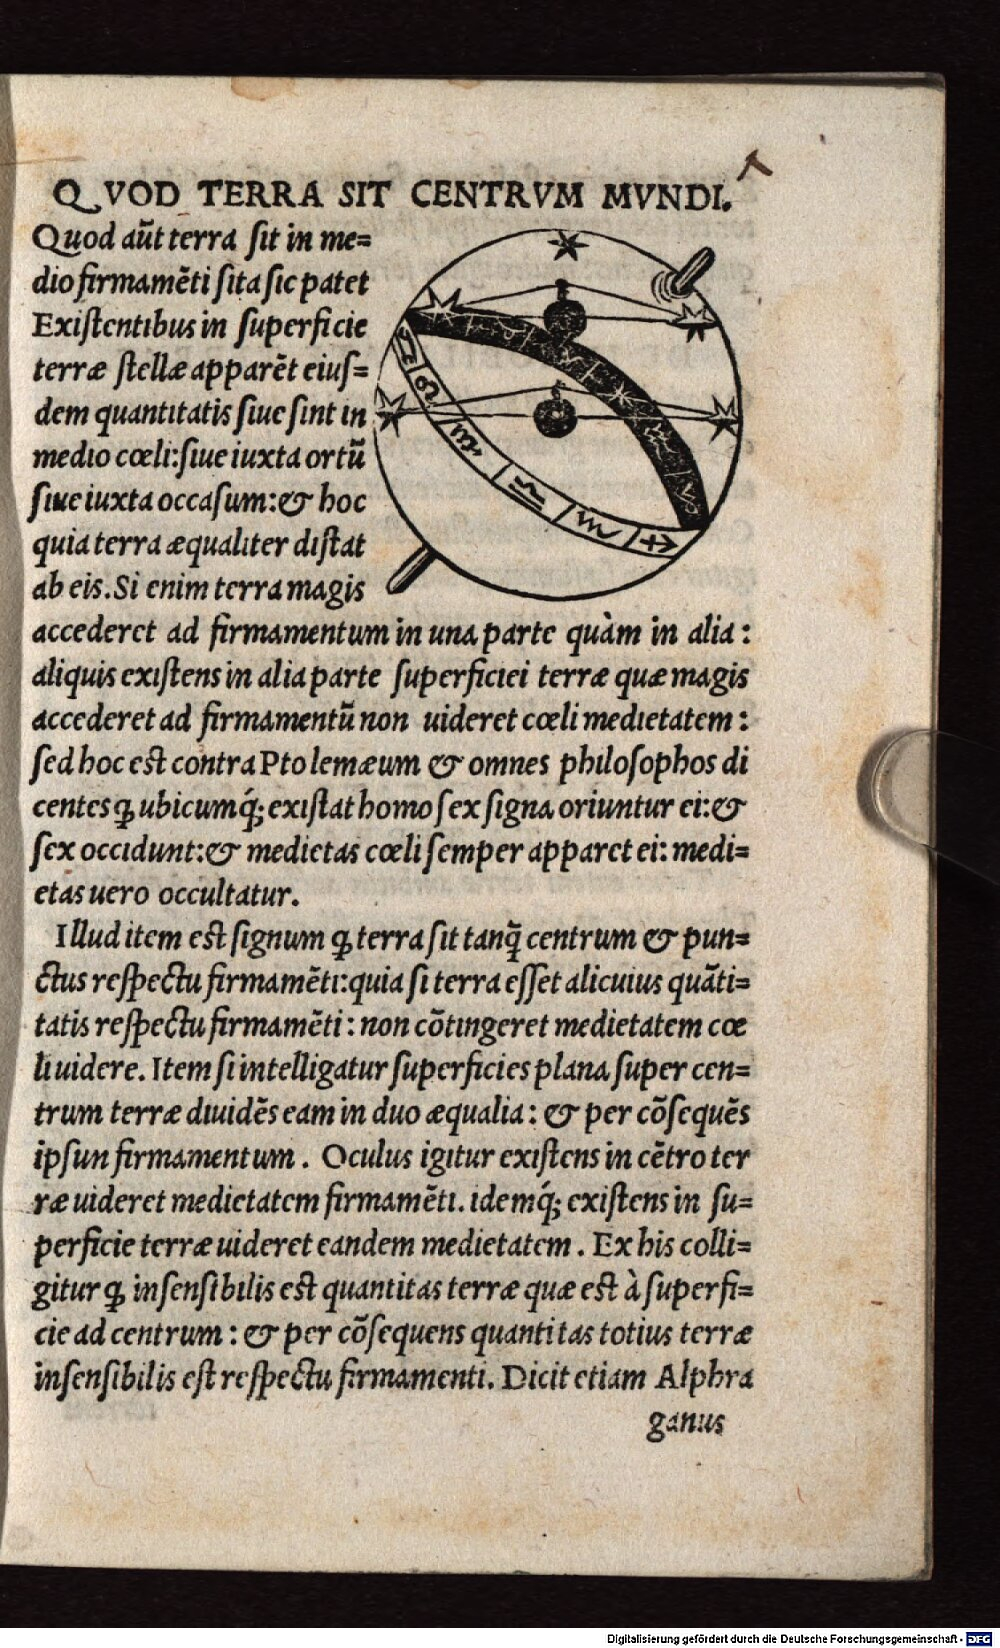 QVOD TERRA SIT CENTRVM MVNDI.
Quod aũt terra sit in me=
dio firmamẽti sita sic patet
Existentibus in superficie
terræ stellæ apparẽt eius=
dem quantitatis siue sint in
medio cœli: siue iuxta ortũ
siue iuxta occasum: & hoc
quia terra æqualiter distat
ab eis. Si enim terra magis
accederet ad firmamentum in una parte quàm in alia:
aliquis existens in alia parte superficiei terræ quæ magis
accederet ad firmamentũ non uideret cœli medietatem:
sed hoc est contra Ptolemæum & omnes philosophos di
centes ꝙ ubicumq́; existat homo sex signa oriuntur ei: &
sex occidunt: & medietas cœli semper apparet ei: medi=
etas uero occultatur.
Illud item est signum ꝙ terra sit tanq̃ centrum & pun=
ctus respectu firmamẽti: quia si terra esset alicuius quãti=
tatis respectu firmamẽti: non cõtingeret medietatem cœ
li uidere. Item si intelligatur superficies plana super cen=
trum terræ diuidẽs eam in duo æqualia: & per cõsequẽs
ipsun firmamentum. Oculus igitur existens in cẽtro ter
ræ uideret medietatem firmamẽti. idemq́; existens in su=
perficie terræ uideret eandem medietatem. Ex his colli=
gitur ꝙ insensibilis est quantitas terræ quæ est à superfi=
cie ad centrum: & per cõsequens quantitas totius terræ
insensibilis est respectu firmamenti. Dicit etiam Alphra
ganus
Digitalisierung gefördert durch die Deutsche Forschungsgemeinschaft - DFG